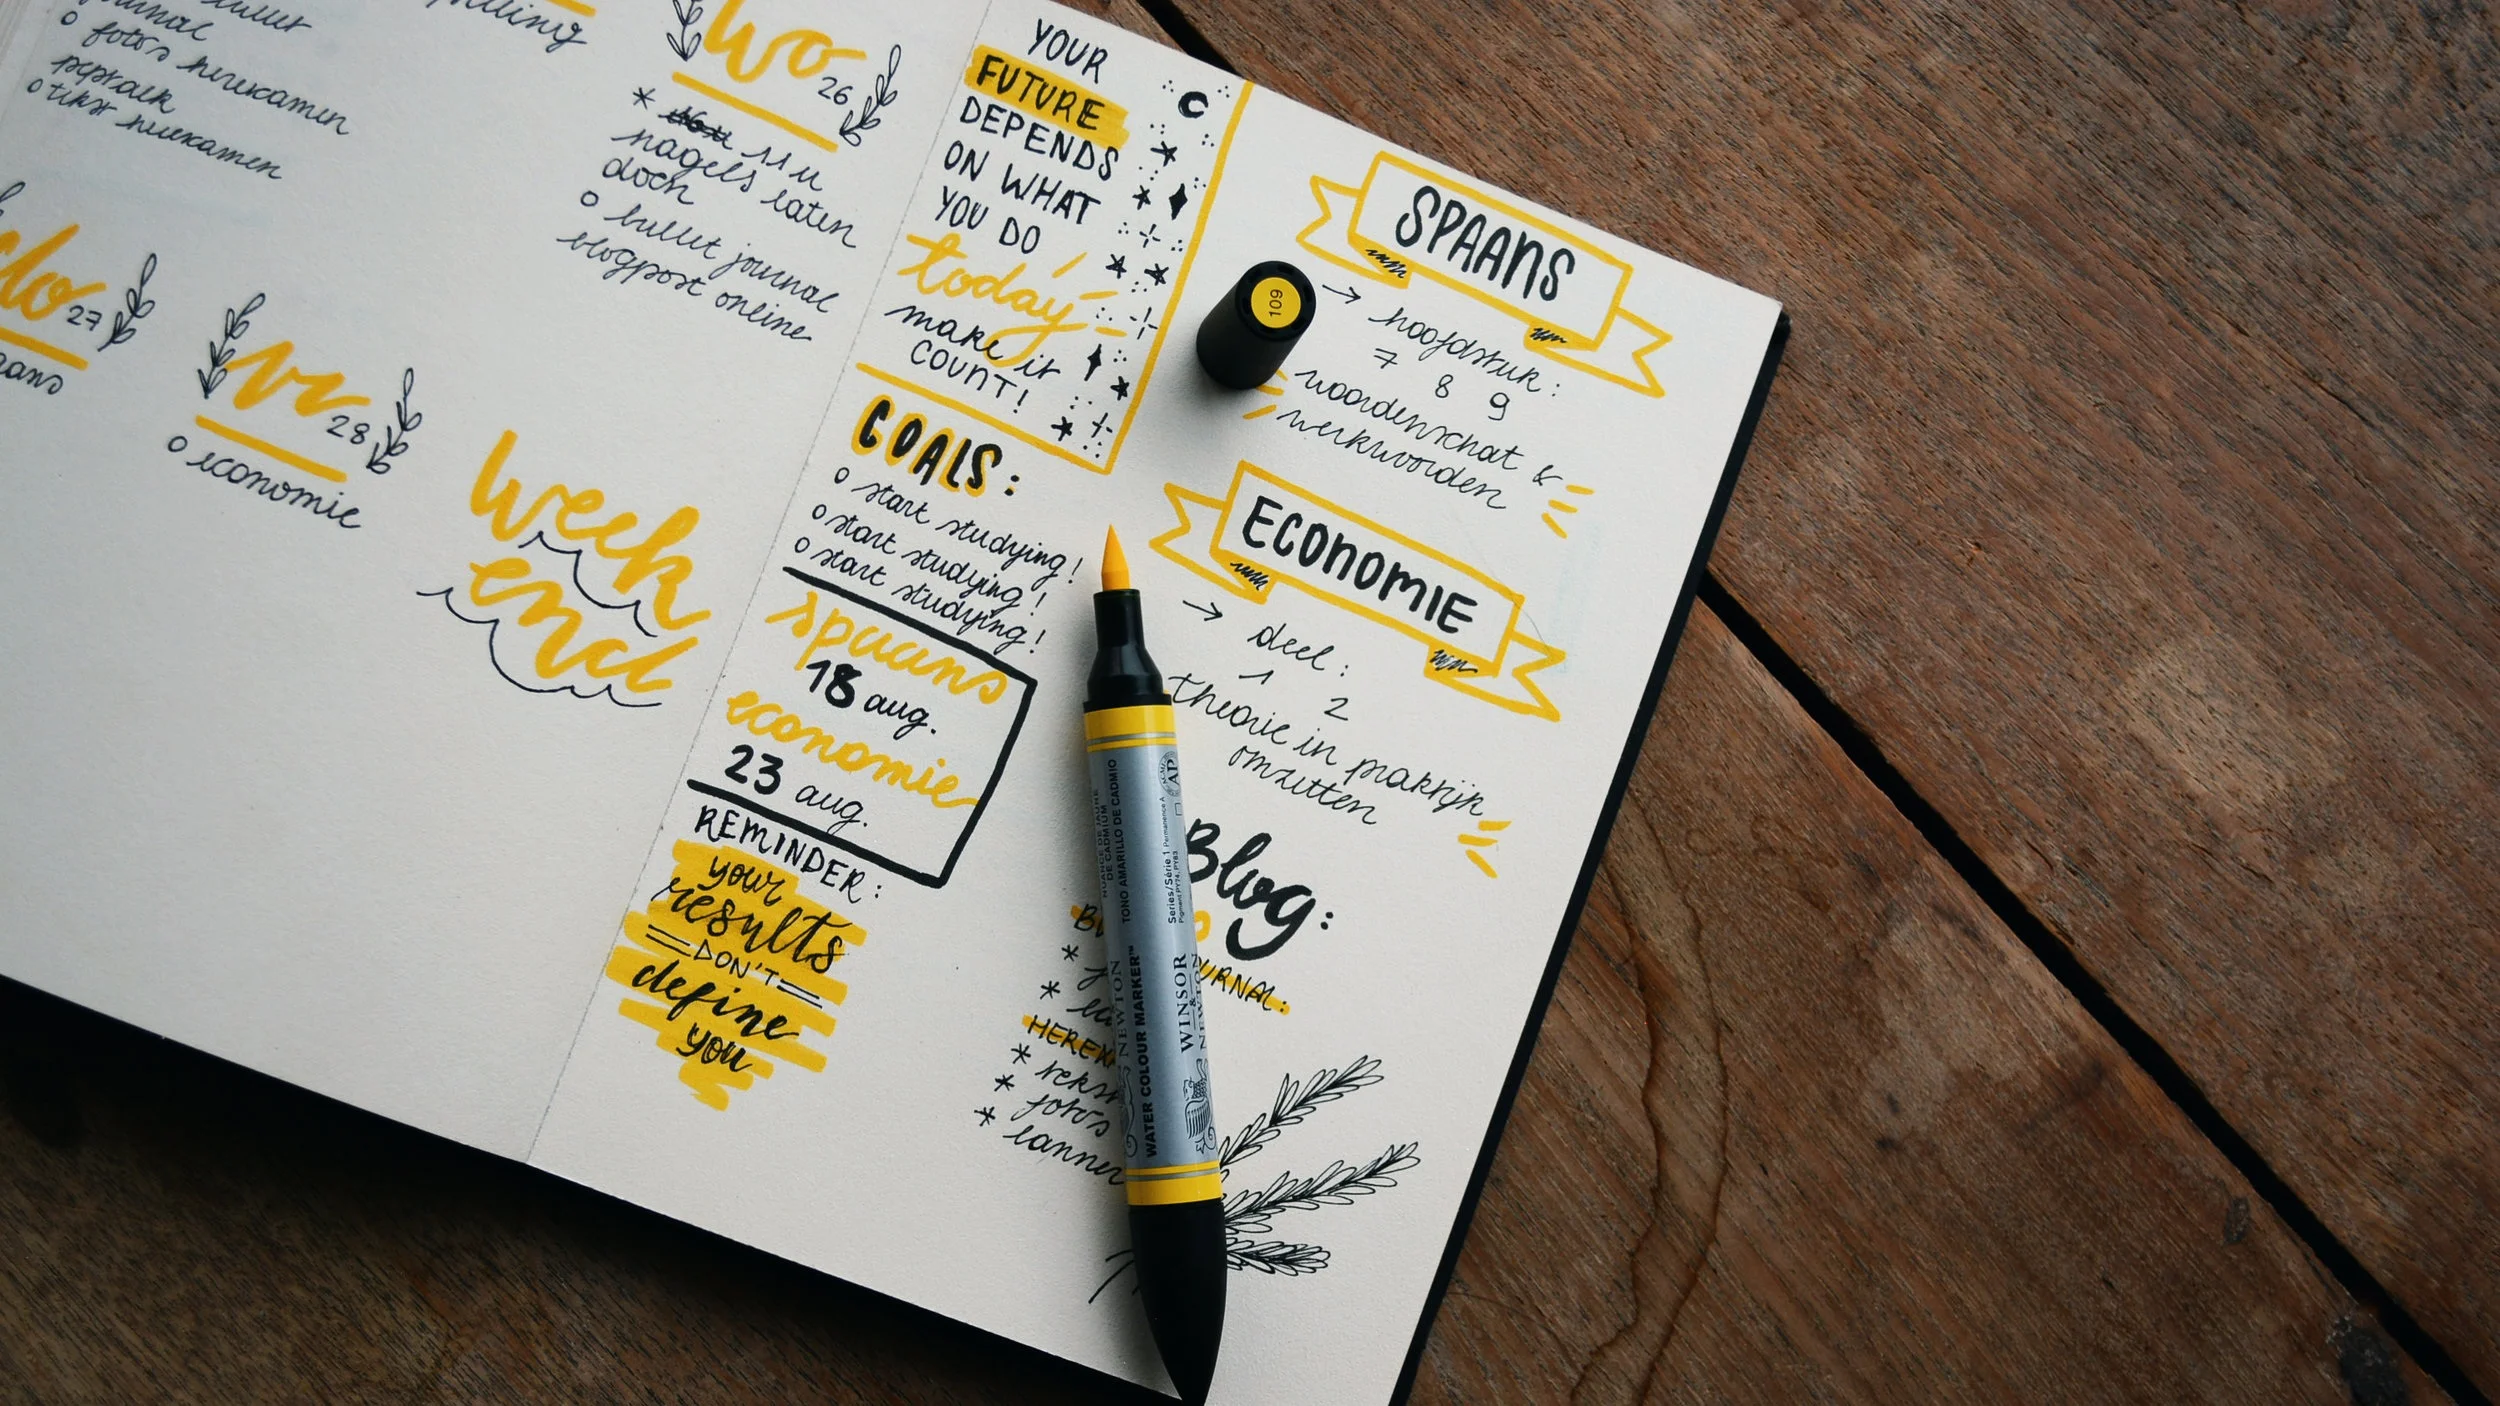 journal
o foto's herexamen
peptalk
o tekst herexamen
wo
26
* 11 u
nagels laten
doen
o bullet journal
blogpost online
do
27
vr
28
o economie
week
end
YOUR
FUTURE
DEPENDS
ON WHAT
YOU DO
today
make it
COUNT!
GOALS:
o start studying!
o start studying!
o start studying!
spaans
18 aug.
economie
23 aug.
REMINDER:
your
results
DON'T
define
you
SPAANS
→ hoofdstuk:
7 8 9
woordenschat &
werkwoorden
ECONOMIE
→ deel:
1 2
theorie in praktijk
omzetten
Blog:
URNAL:
HEREX
* tekst
* foto's
* banner
109
WINSOR
& NEWTON
WATER COLOUR MARKER™
TONO AMARILLO DE CADMIO
Series/Série 1 Permanence A
AP